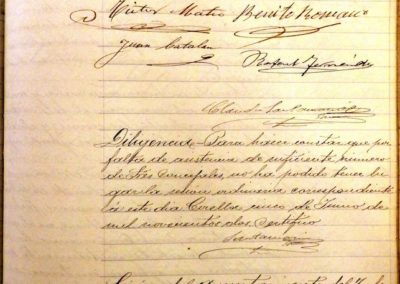 Victor Mateo Benito Roman
Juan Catalán
Rafael Fernández
Claudio Santamaria
Diligencia - Para hacer constar que por
falta de asistencia de suficiente número
de Sres Concejales no ha podido tener lu
gar la sesion ordinaria correspondiente
á este dia Corella cinco de Junio de
mil novecientos dos. Certifico
Santamaria